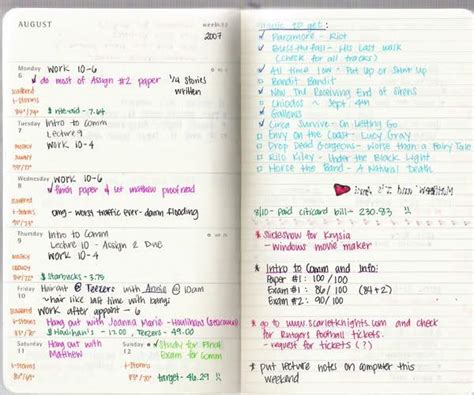 AUGUST
week 32
2007
Monday
6
work 10-6
✓ do most of Assign #2 paper
1/4 stories
written
scattered
t-storms
$ rite-aid - 7.64
Tuesday
7
Intro to Comm
Lecture 9
work 10-4
Wednesday
8
work 10-6
✓ finish paper & get matthew proofread
omg - worst traffic ever - damn flooding
scattered
t-storms
Thursday
9
Intro to Comm
Lecture 10 - Assign 2 Due
work 10-4
$ Starbucks - 3.75
Friday
10
Haircut @ Teezers with Annie @ 10am
~ hair like last time with bangs
work after appoint - 6
t-storms
Hang out with Joanna Maria - Houlihans
$ Houlihan's - 13.00, Teezers - 49.00
Saturday
11
Hang out with
Matthew
Sunday
12
✓ Study for Final
Exam for Comm
target - 46.29
music to get:
✓ Paramore - Riot
✓ Blessthefall - His Last Walk
(check for all tracks)
✓ All Time Low - Put Up or Shut Up
□ Bandit Bandit
✓ New The Receiving End of Sirens
□ Chiodos ~ Sept. 4th
✓ Gallows
✓ Circa Survive - On Letting Go
□ Envy on the Coast - Lucy Gray
□ Drop Dead Gorgeous - Worse than a Fairy Tale
□ Rilo Kiley - Under the Black Light
□ Horse the Band - A Natural Death
8/10 - paid citicard bill - 230.83
* Slideshow for Krysia
- windows movie maker
* Intro to Comm and Info:
Paper #1: 100/100
Exam #1: 86/100 (84+2)
Exam #2: 90/100
* go to www.scarletknights.com and check
for Rutgers football tickets.
- request for tickets (?)
* put lecture notes on computer this
weekend